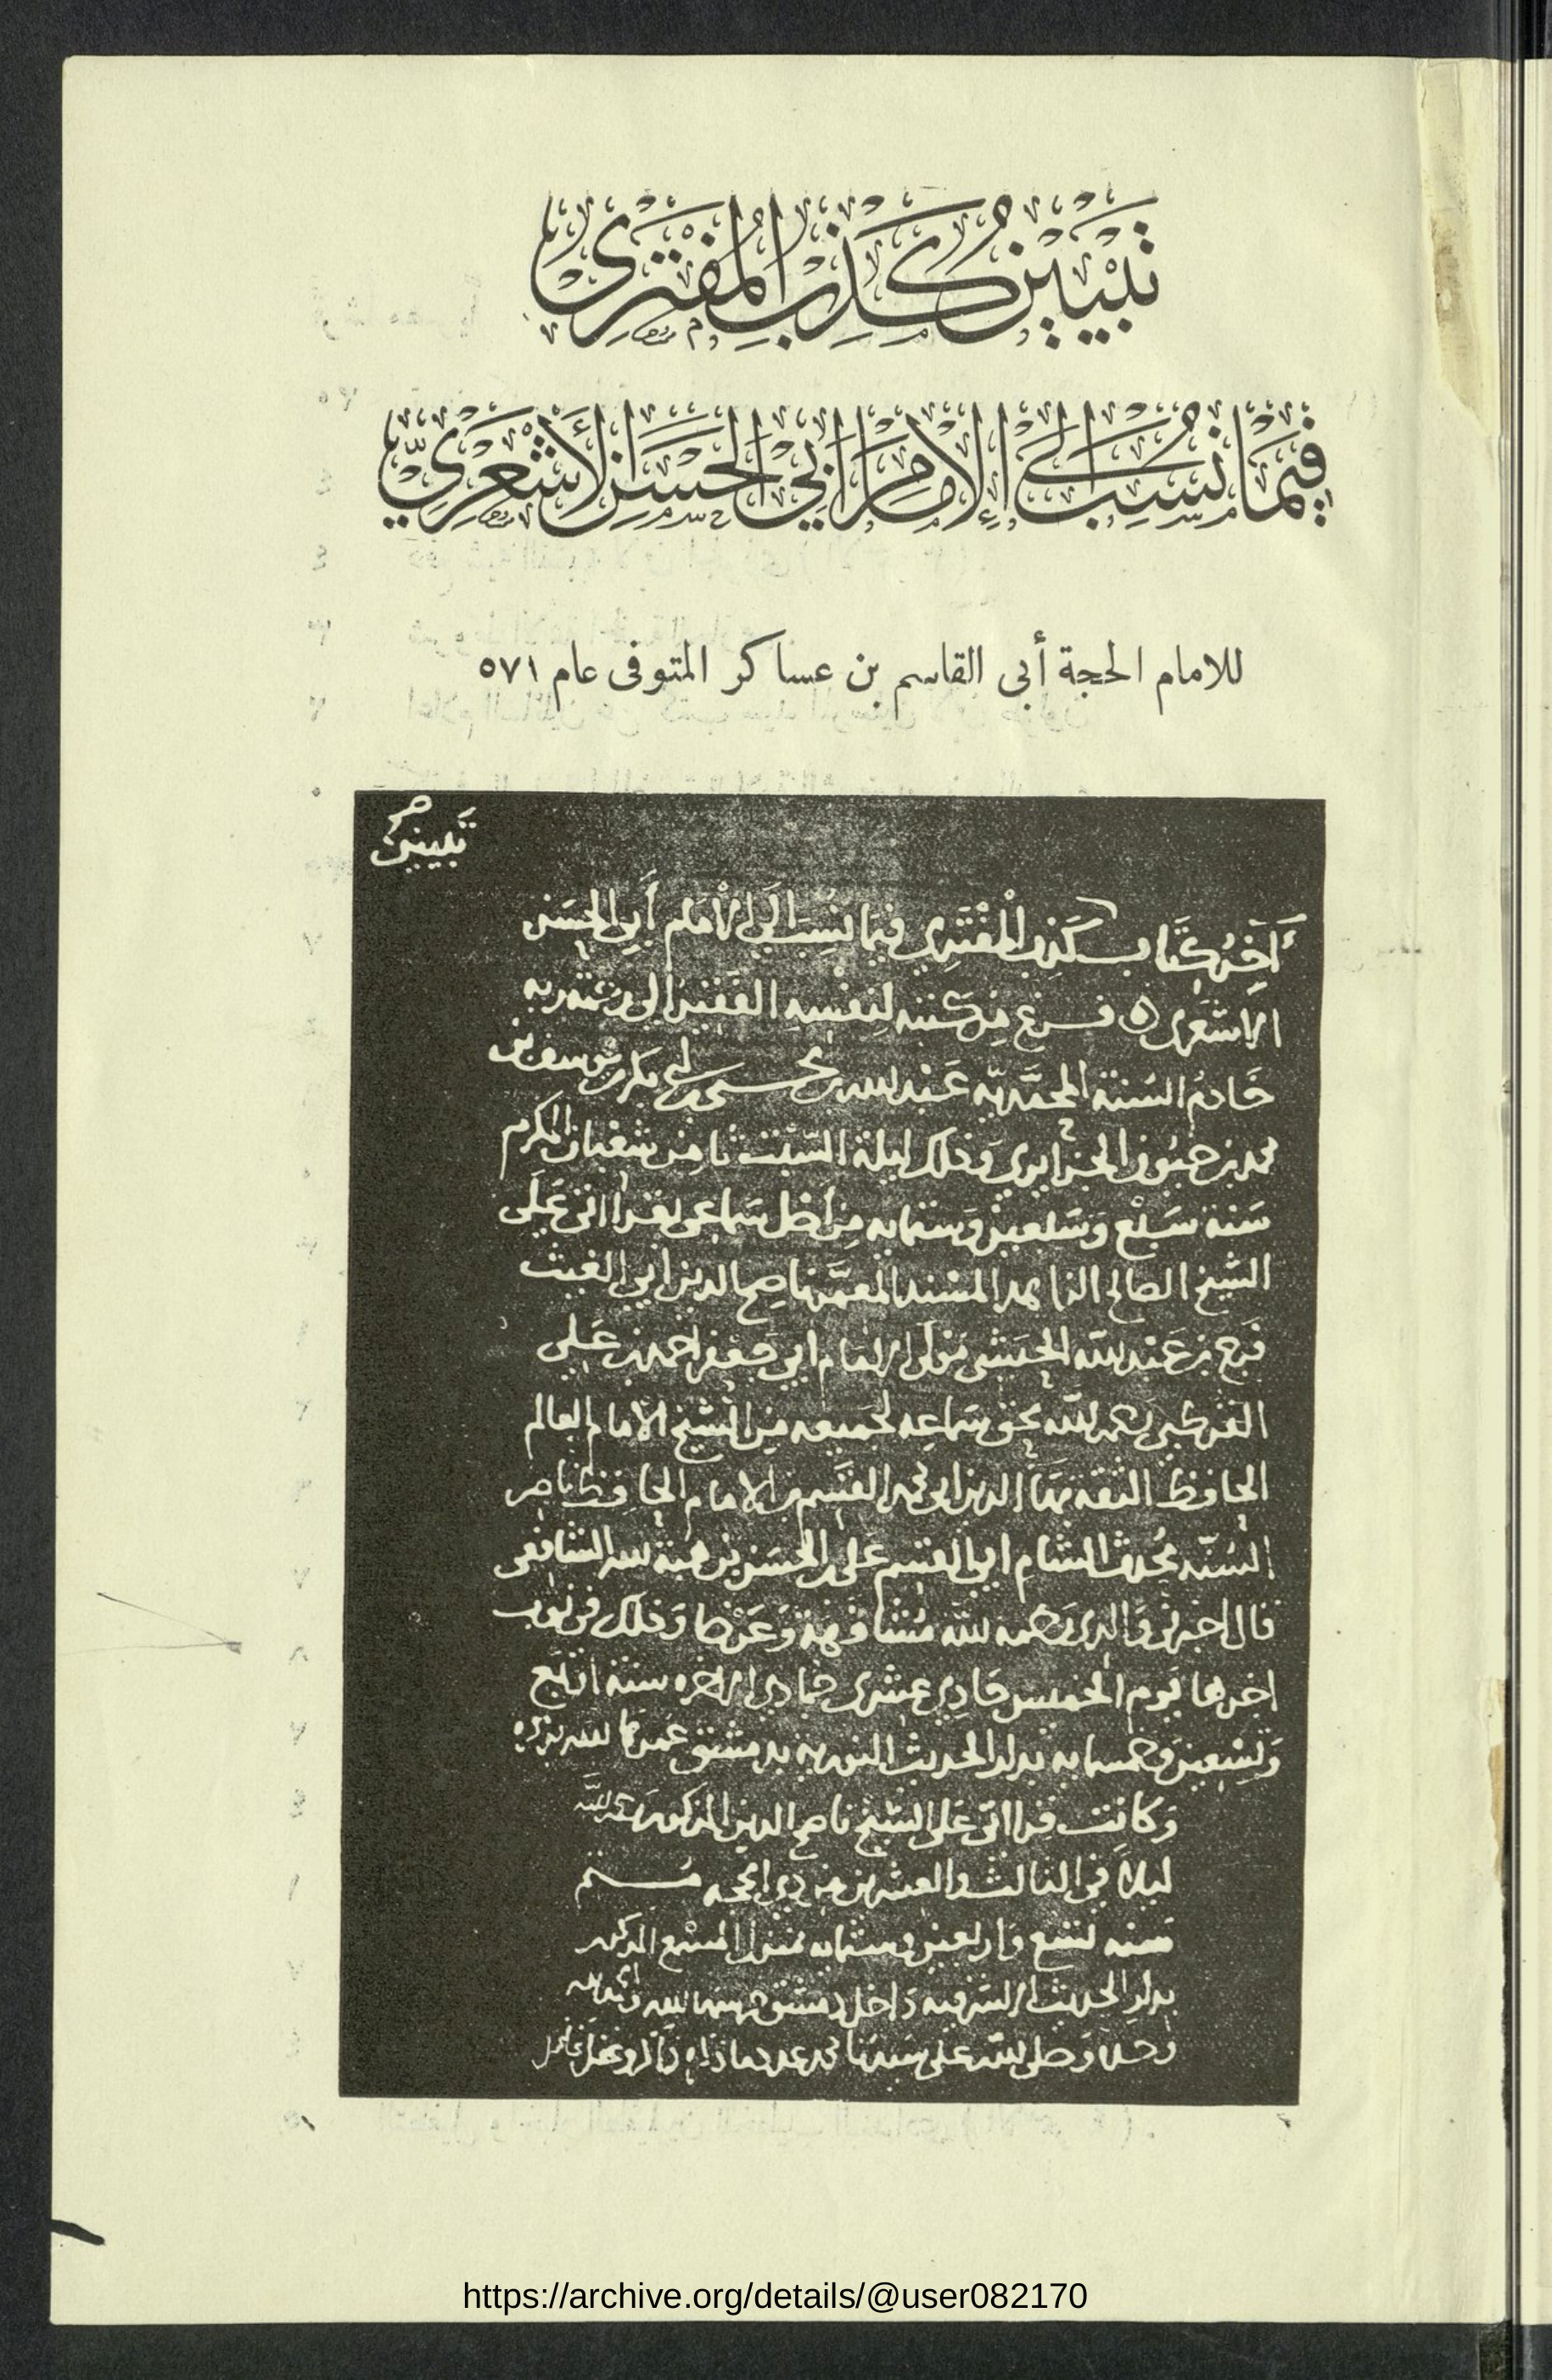 تَبْيِينُ كَذِبِ الْمُفْتَرِى
فِيمَا نُسِبَ إِلَى الْإِمَامِ أَبِي الْحَسَنِ الْأَشْعَرِيِّ
للامام الحجة أبى القاسم بن عساكر المتوفى عام ٥٧١
تبيين
آخر كتاب كذب المفتري فيما نسب الى الامام أبي الحسن
الاشعرى فرغ من كتبه لنفسه الفقير الى رحمة ربه
خادم السنة المحمديه عبد الله بن بكر بن يوسف بن
محمد بن الجزايري وذلك ليلة السبت ثامن شعبان المكرم
سنة سبع وسبعين وستمايه من اصل سماعى بقرااتى على
الشيخ الصالح الزاهد المسند المعمر ناصح الدين ابي الغيث
فرج بن عبد الله الحبشى مولى الامام ابي جعفر احمد بن علي
القرطبى رحمه الله بحق سماعه لجميعه من الشيخ الامام العالم
الحافظ الثقه بهاء الدين ابى محمد القسم بن الامام الحافظ ناصر
السنه محدث الشام ابي القسم على بن الحسن بن هبة الله الشافعى
قال اخبرنى والدى رحمه الله مشافهة وعرضا وذلك فى نوب
اخرها يوم الخميس حادي عشرى جمادى الاخره سنة اربع
وتسعين وخمسمايه بدار الحديث النوريه بدمشق عمرها الله بذكره
وكانت قرااتى على الشيخ ناصح الدين المذكور رحمه الله
ليلا في الثالث والعشرين من ذي الحجه
سنه تسع واربعين وستمايه بمنزل المسمع المذكور
بدار الحديث الاشرفيه داخل دمشق
وحده وصلى الله على سيدنا محمد عدد ما ذكره ذاكر وغفل غافل
https://archive.org/details/@user082170